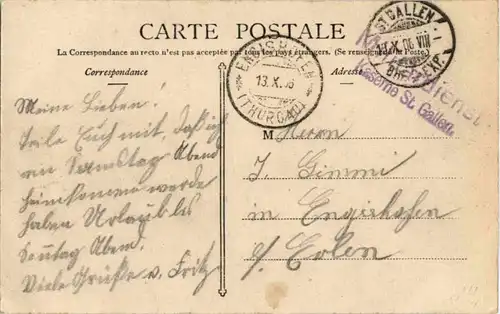 CARTE POSTALE
La Correspondance au recto n'est pas acceptée par tous les pays étrangers. (Se renseigner à la Poste).
Correspondance
Adresse
ST GALLEN
13.X.06.VIII
BRF. EXP.
ENGISHOFEN
13.X.06
(THURGAU)
Kaserne St. Gallen.
Meine Lieben!
Teile Euch mit, daß ich
am Samstag Abend
heimkommen werde
haben Urlaub bis
Sontag Abend.
Viele Grüße v. Fritz
M
Herrn
J. Gimmi
in Engishofen
b/ Erlen